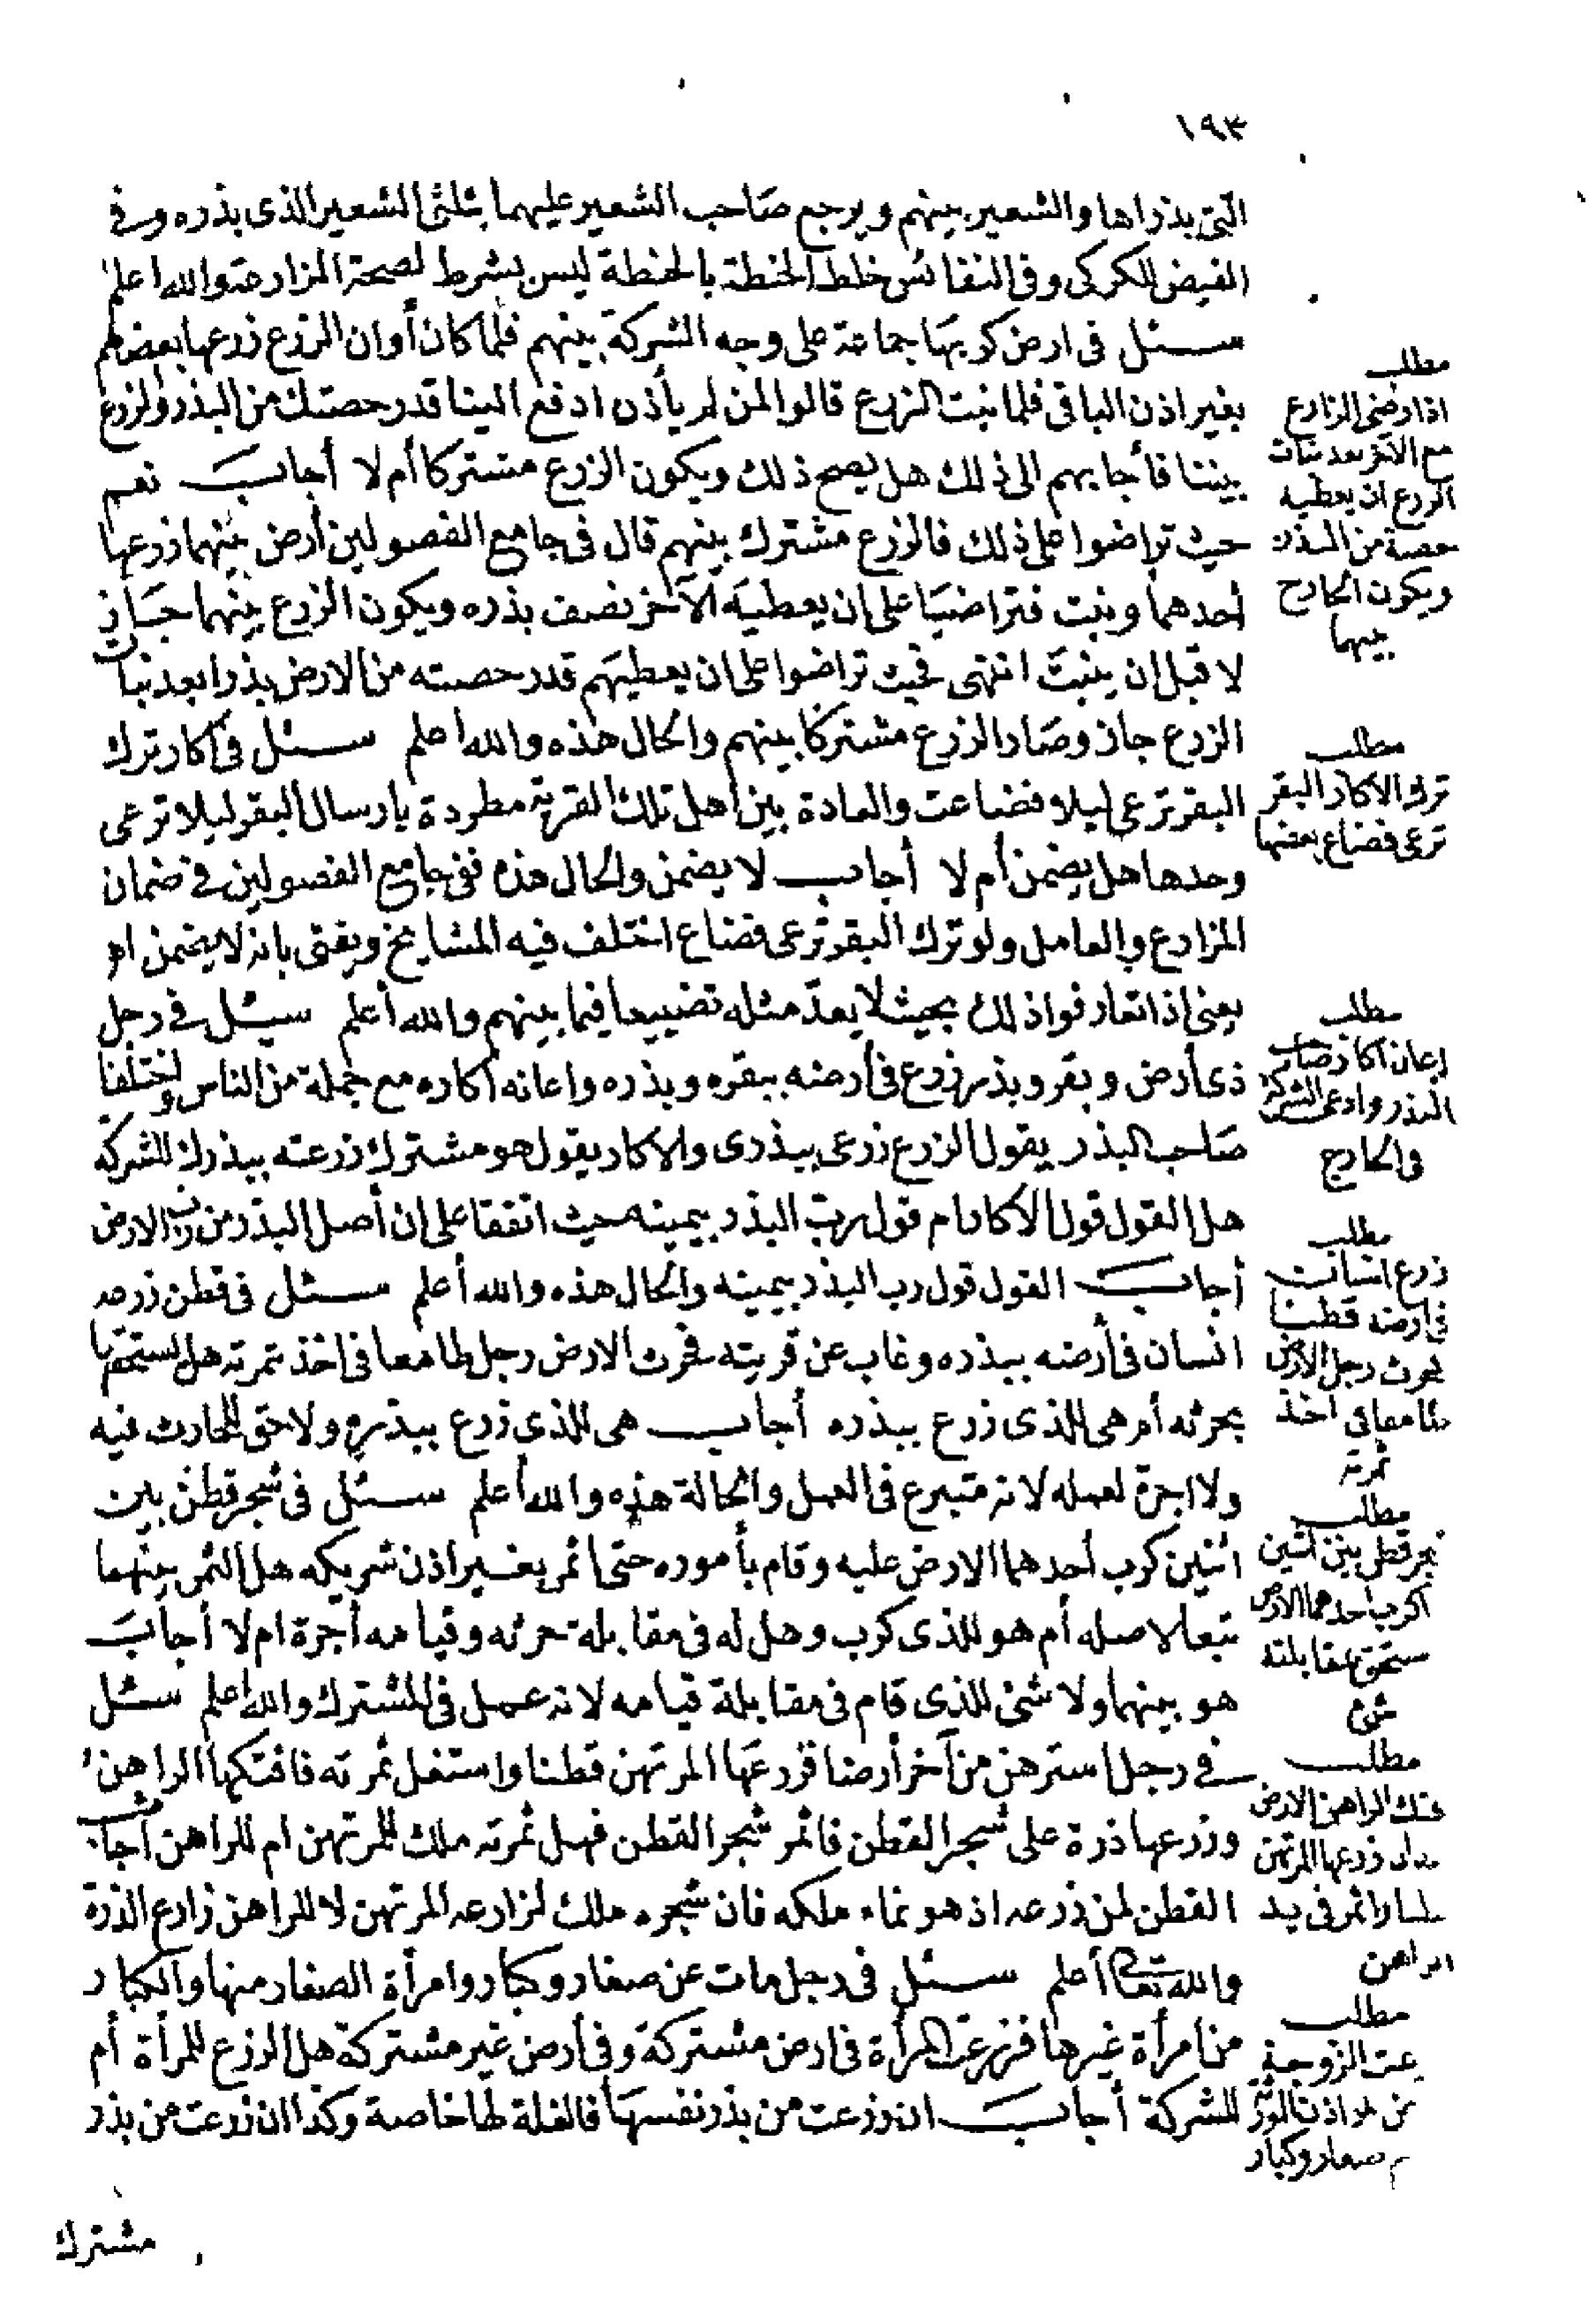 ١٩٣
التى بذراها والشعير بينهم ويرجع صاحب الشعير عليهما بثلثى الشعير الذى بذره وفى
الفيض للكركى وفى النفائس خلط الحنطة بالحنطة ليس بشرط لصحة المزارعة والله اعلم
سئل فى ارض كربها جماعة على وجه الشركة بينهم فلما كان أوان الزرع زرعها بعضهم
بغير اذن الباقى فلما نبت الزرع قالوا لمن لم يأذن ادفع الينا قدر حصتك من البذر والزرع
بيننا فأجابهم الى ذلك هل يصح ذلك ويكون الزرع مشتركا أم لا أجاب نعم
حيث تراضوا على ذلك فالزرع مشترك بينهم قال فى جامع الفصولين أرض بينهما زرعها
أحدهما ونبت فتراضيا على ان يعطيه الآخر نصف بذره ويكون الزرع بينهما جاز
لا قبل ان ينبت انتهى فحيث تراضوا على ان يعطيهم قدر حصته من الارض بذرا بعد نبات
الزرع جاز وصار الزرع مشتركا بينهم والحال هذه والله اعلم سئل فى أكار ترك
البقر ترعى ليلا فضاعت والعادة بين اهل تلك القرية مطردة بارسال البقر ليلا ترعى
وحدها هل يضمن أم لا أجاب لا يضمن والحال هذه ففى جامع الفصولين فى ضمان
المزارع والعامل ولو ترك البقر ترعى فضاع اختلف فيه المشايخ ويفتى بانه لا يضمن اه
يعنى اذا تعارفوا ذلك بحيث لا يعد مثله تضييعا فيما بينهم والله أعلم سئل فى رجل
ذى أرض وبقر وبذر زرع فى أرضه ببقره وبذره واعانه أكاره مع جملة من الناس واختلفا
صاحب البذر يقول الزرع زرعى ببذرى والاكار يقول هو مشترك زرعته ببذرك للشركة
هل القول قول الاكار ام قول رب البذر بيمينه حيث اتفقا على ان أصل البذر من رب الارض
أجاب القول قول رب البذر بيمينه والحال هذه والله أعلم سئل فى قطن زرعه
انسان فى أرضه ببذره وغاب عن قريته فحرث الارض رجل طامعا فى اخذ ثمرته هل يستحقها
بحرثه أم هى للذى زرع ببذره أجاب هى للذى زرع ببذره ولا حق للحارث فيه
ولا اجرة لعمله لانه متبرع فى العمل والحالة هذه والله أعلم سئل فى شجر قطن بين
اثنين كرب أحدهما الارض عليه وقام بأموره حتى اثمر بغير اذن شريكه هل الثمر بينهما
تبعا لاصله أم هو للذى كرب وهل له فى مقابلة حرثه وقيامه أجرة ام لا أجاب
هو بينهما ولا شئ للذى قام فى مقابلة قيامه لانه عمل فى المشترك والله اعلم سئل
فى رجل استرهن من آخر أرضا فزرعها المرتهن قطنا واستغل ثمرته فافتكها الراهن
وزرعها ذرة على شجر القطن فاثمر شجر القطن فهل ثمرته ملك للمرتهن ام للراهن أجاب
القطن لمن زرعه اذ هو نماء ملكه فان شجره ملك لزارعه المرتهن لا للراهن زارع الذرة
والله تعالى أعلم سئل فى رجل مات عن صغار وكبار وامرأة الصغار منها والكبار
من امرأة غيرها فزرعت المرأة فى ارض مشتركة وفى أرض غير مشتركة هل الزرع للمرأة أم
للشركة أجاب ان زرعت من بذر نفسها فالغلة لها خاصة وكذا ان زرعت من بذر
مشترك
مطلب
اذا رضى الزارع
مع الآخر بعد نبات
الزرع ان يعطيه
حصة من البذر
ويكون الخارج
بينهما
مطلب
ترك الاكار البقر
ترعى فضاع بعضها
مطلب
اعان اكار صاحب
البذر وادعى الشركة
فى الخارج
مطلب
زرع انسان
فى ارضه قطنا
فحرث رجل الارض
طامعا فى اخذ
ثمرته
مطلب
شجر قطن بين اثنين
اكرب احدهما الارض
يستحق بمقابلته
شئ
مطلب
فك الراهن الارض
زرعها المرتهن
واثمر فى يد
الراهن
مطلب
زرعت الزوجة
صغار وكبار